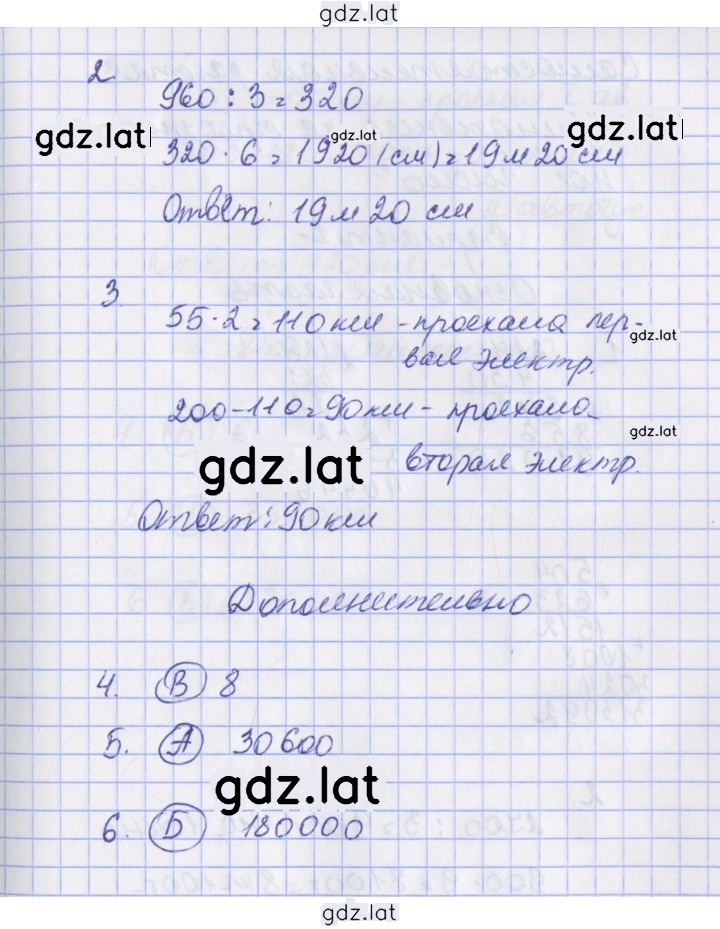 gdz.lat
2.
960 : 3 = 320
gdz.lat gdz.lat gdz.lat
320 · 6 = 1920 (см) = 19 м 20 см
Ответ: 19 м 20 см
3
55 · 2 = 110 км - проехала пер-
gdz.lat
вая электр.
200 - 110 = 90 км - проехала
gdz.lat
gdz.lat вторая электр.
Ответ: 90 км
Дополнительно
4. В 8
5. А 30600
gdz.lat
6. Б 180000
gdz.lat